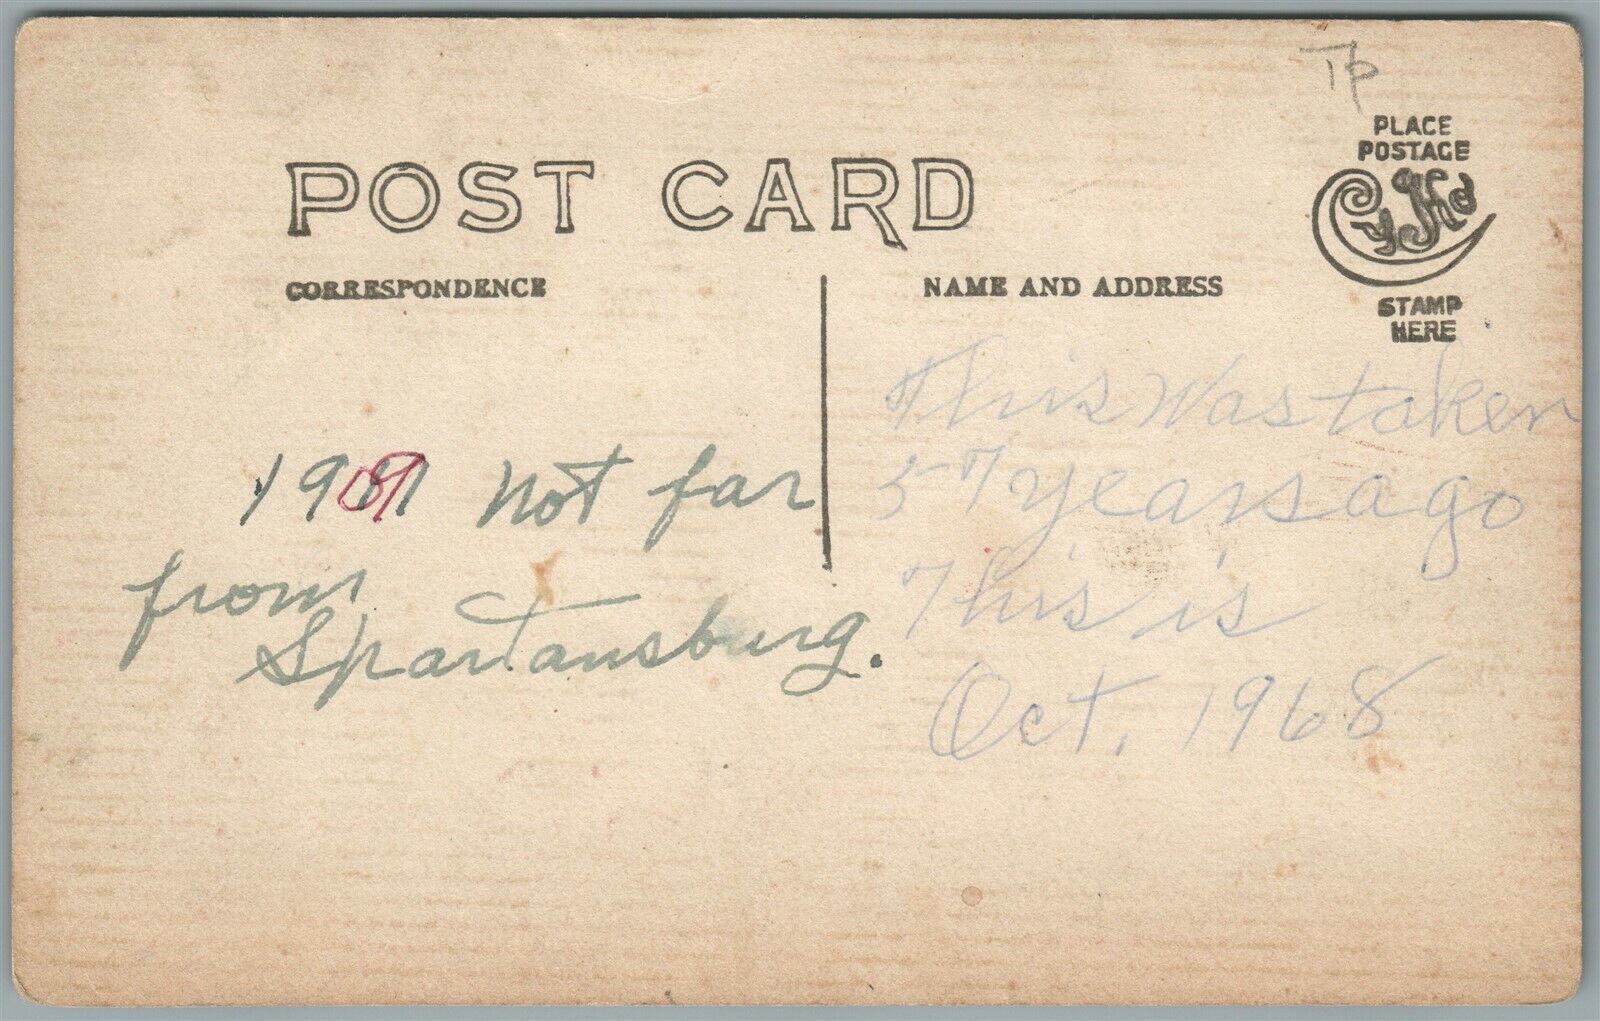 TP
PLACE
POSTAGE
Cyko
STAMP
HERE
POST CARD
CORRESPONDENCE
NAME AND ADDRESS
1909 not far
from
Spartansburg.
This was taken
57 years ago
This is
Oct, 1968